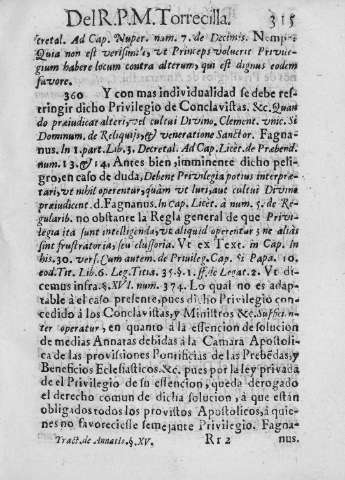 Del R.P.M. Torrecilla. 315
cretal. Ad Cap. Nuper. num. 7. de Decimis. Nempe:
Quia non est verisimile, vt Princeps voluerit Privile-
gium habere locum contra alterum, qui est dignus eodem
favore.
360 Y con mas individualidad se debe res-
tringir dicho Privilegio de Conclavistas. &c. Quan
do præiudicat alteri, vel cultui Divino. Clement. vnic. Si
Dominum. de Reliquijs, & veneratione Sanctor. Fagna-
nus. In 1. part. Lib. 3. Decretal. Ad Cap. Licèt. de Præbend.
num. 13. & 14. Antes bien, imminente dicho peli-
gro, en caso de duda, Debene Privilegia potius interpre-
tari, vt nihil operentur, quàm vt Iuri, aut cultui Divino
præiudicent. d. Fagnanus. In Cap. Licèt. à num. 5. de Re-
gularib. no obstante la Regla general de que Privi-
legia ita sunt intelligenda, vt aliquid operentur ; ne aliàs
sint frustratoria, seu elussoria. Vt ex Text. in Cap. In
his. 30. vers. Cum autem. de Privileg. Cap. Si Papa. 10.
eod. Tit. Lib. 6. Leg. Titia. 35. §. 1. ff. de Legat. 2. Vt di-
cemus infra. §. XVI. num. 374. Lo qual no es adap-
table à el caso presente, pues dicho Privilegio con-
cedido à los Conclavistas, y Ministros &c. Sufficien-
ter operatur, en quanto à la essencion de solucion
de medias Annatas debidas à la Camara Apostoli-
ca de las provissiones Pontificias de las Prebēdas, y
Beneficios Eclesiasticos. &c. pues por la ley privada
de el Privilegio de su essencion, queda derogado
el derecho comun de dicha solucion, à que estàn
obligados todos los provistos Apostolicos, à quie-
nes no favoreciesse semejante Privilegio. Fagna-
Tract. de Annatis. §. XV. Rr 2 nus.